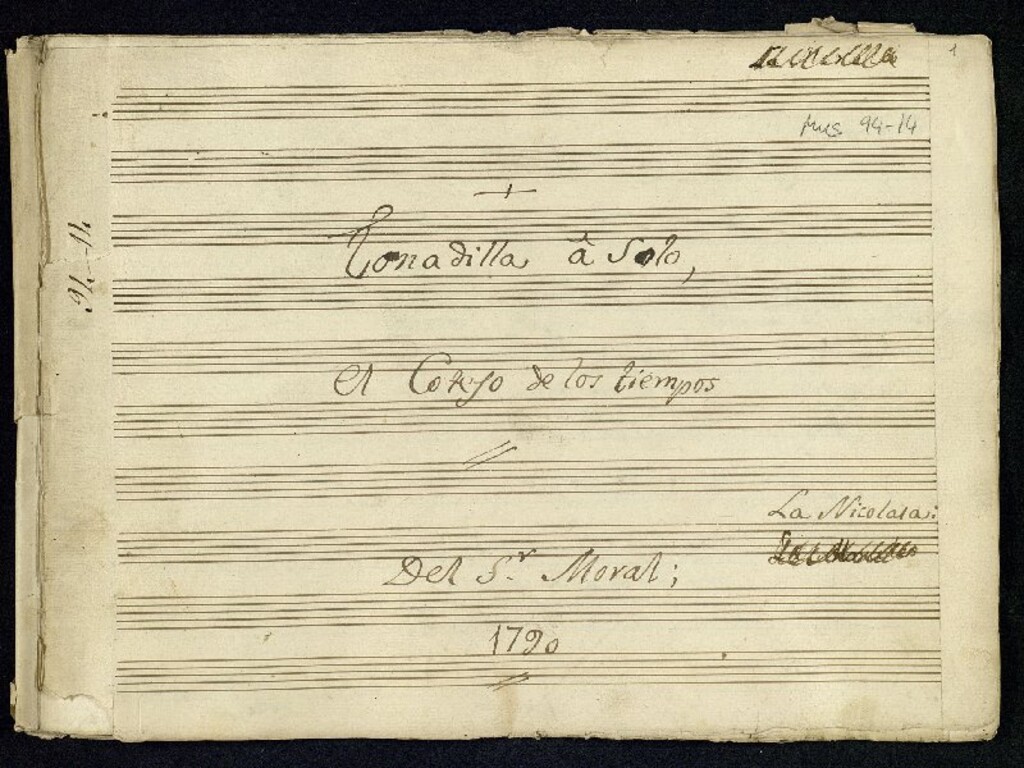 1
Mus 94-14
Tonadilla â Solo,
el Cotejo de los tiempos
La Nicolasa:
Del S.r Moral;
1790
94--14